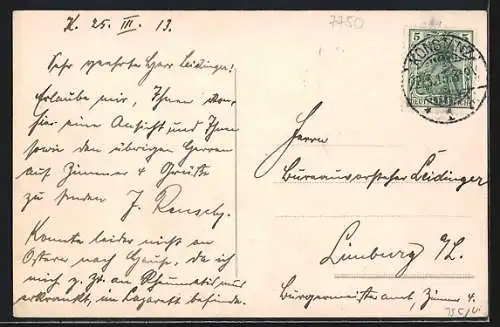 7750
K. 25. III. 13.
Sehr geehrter Herr Leidinger!
Erlaube mir, Ihnen von
hier eine Ansicht und Ihnen
sowie den übrigen Herren
auf Zimmer 4 Grüße
zu senden J. Rensch.
Konnte leider nicht an
Ostern nach Hause, da ich
mich z. Zt. an Rheumatismus
erkrankt, im Lazarett befinde.
5 5
KONSTANZ
DEUTSCHES REICH
Herrn
Bureauvorsteher Leidinger
Limburg a/L.
Bürgermeisteramt, Zimmer 4.